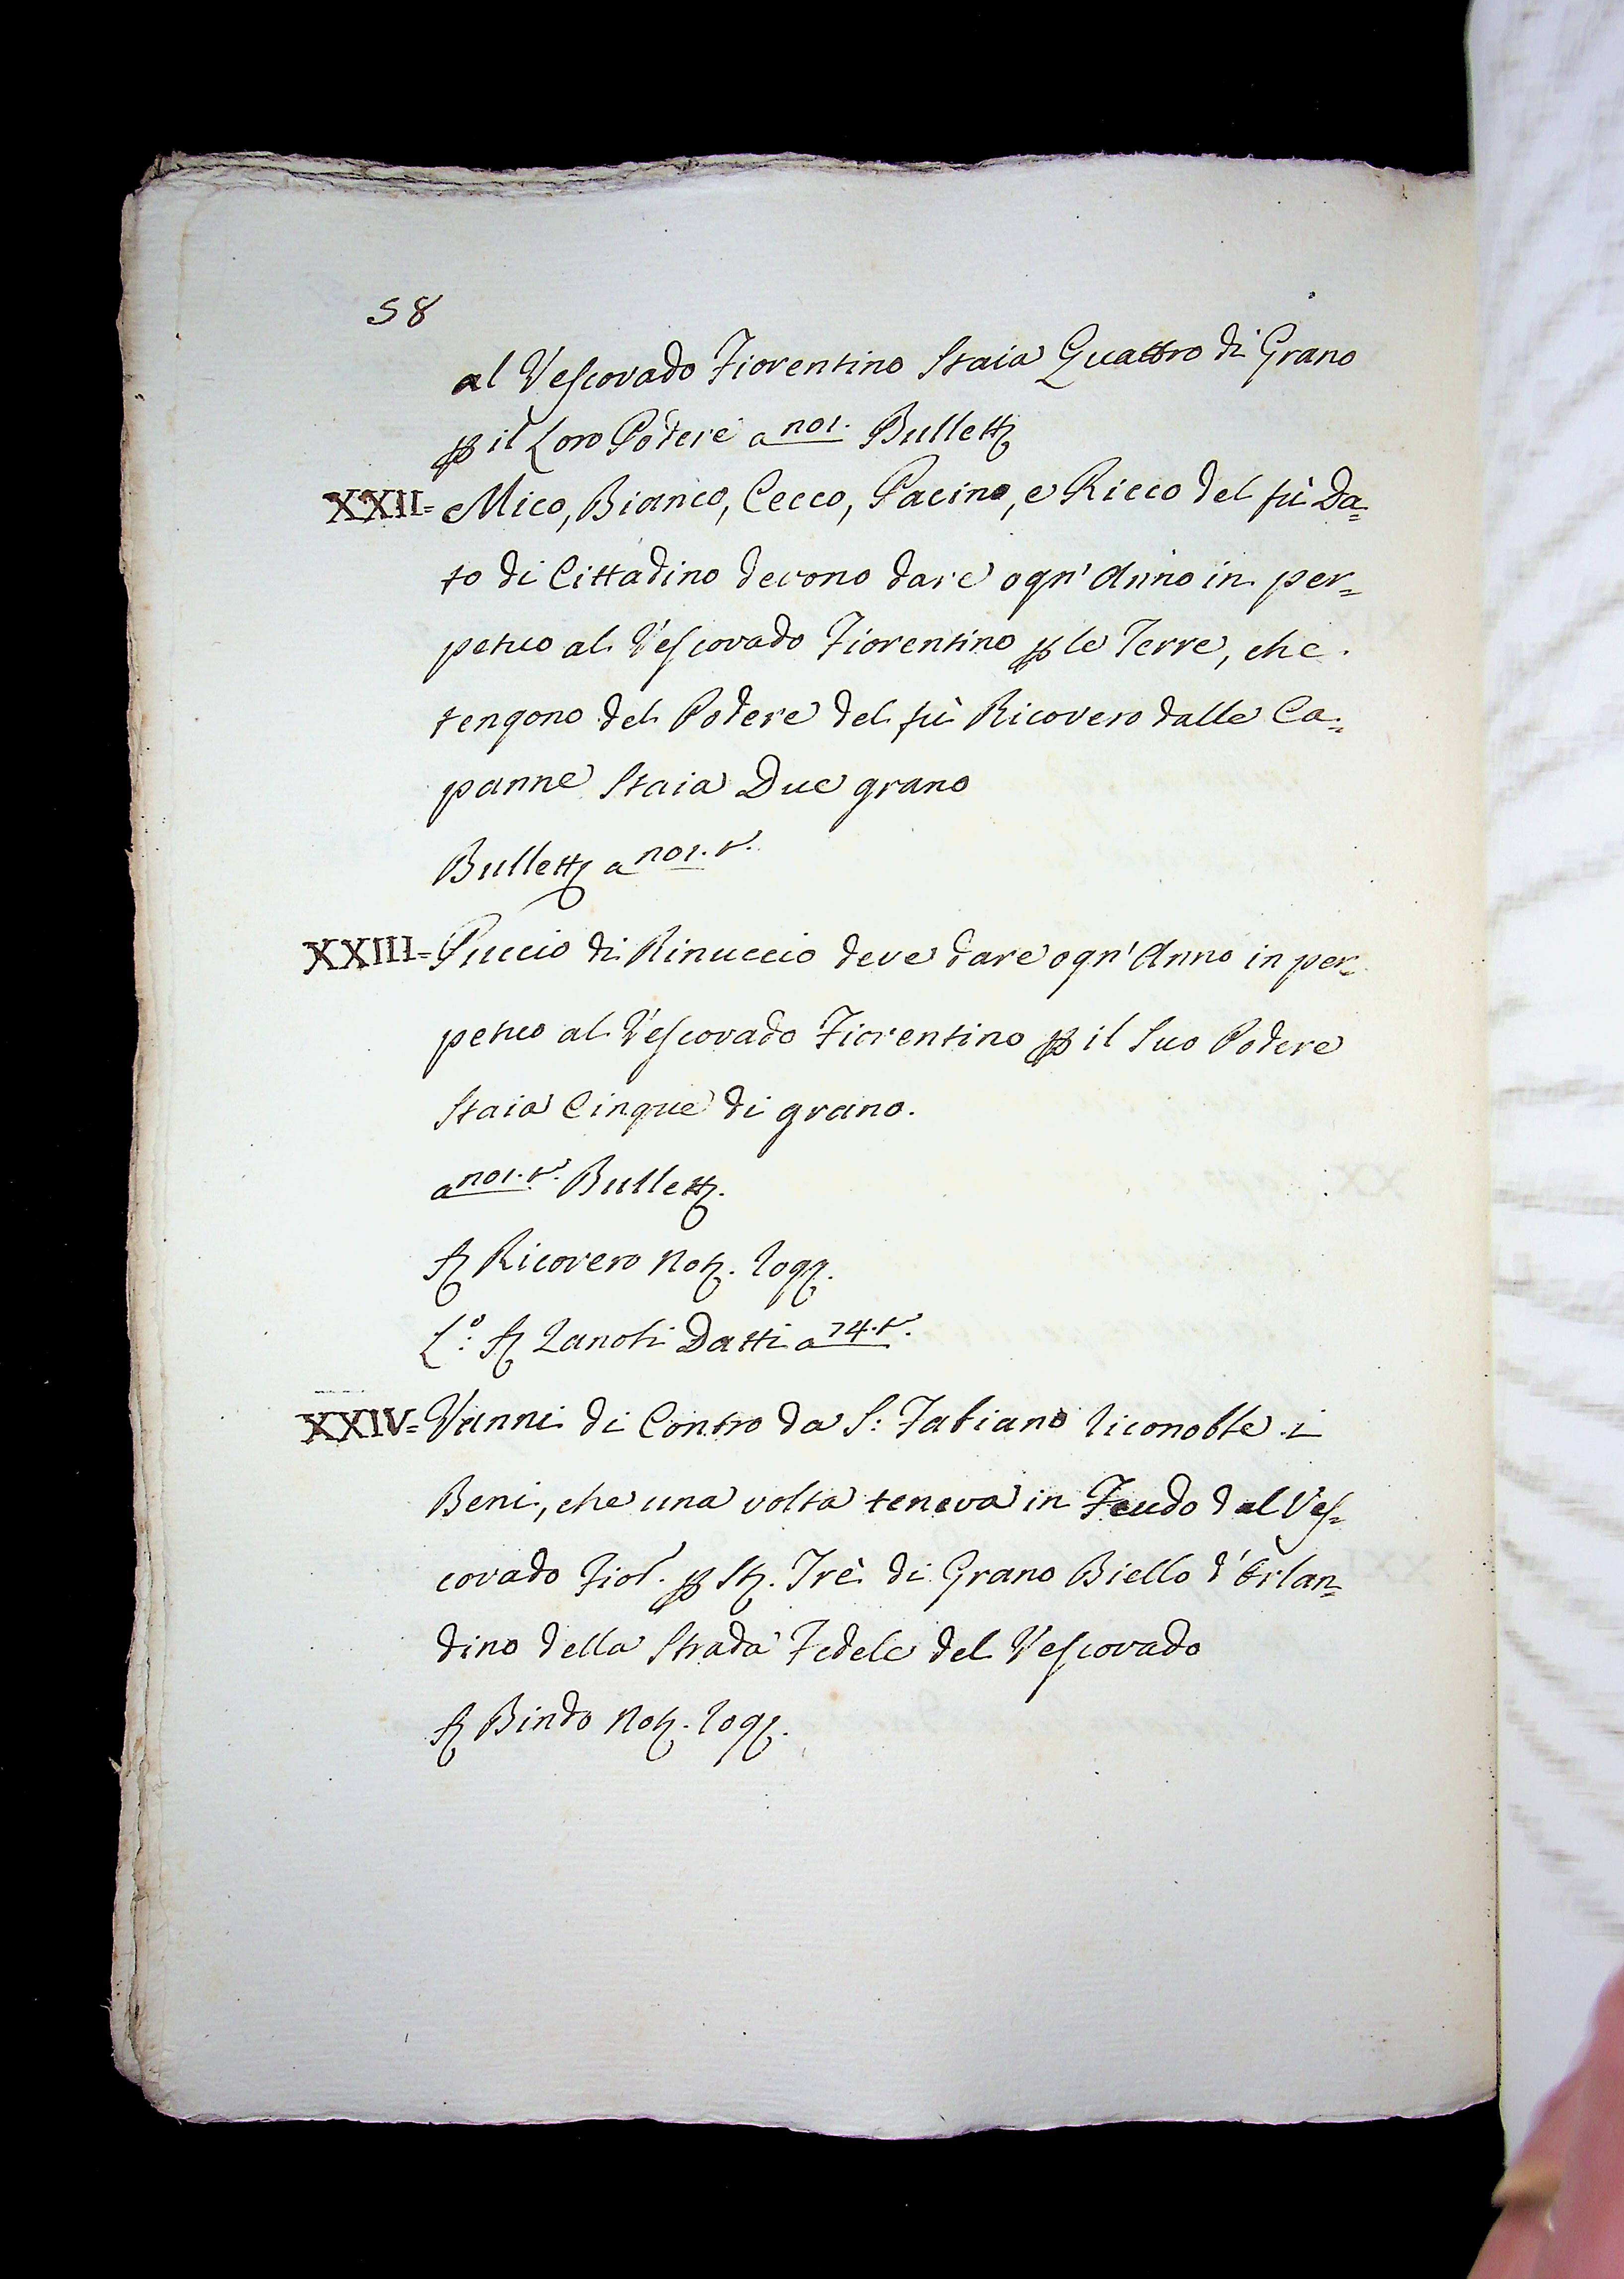 58
al Vescovado Fiorentino Staia Quattro di Grano
p il Loro Podere a 101. Bullett
XXII= Mico, Bianco, Cecco, Pacino, e Ricco del fù Da=
to di Cittadino devono dare ogn' Anno in per=
petuo al Vescovado Fiorentino p le Terre, che
tengono del Podere del fù Ricovero dalle Ca=
panne Staia Due grano
Bullett a 101. t.
XXIII= Puccio di Rinuccio deve dare ogn' Anno in per=
petuo al Vescovado Fiorentino p il Suo Podere
Staia Cinque di grano.
a 101. t. Bullett.
S Ricovero Not. rog.
L.º S Zanobi Datti a 74. t.
XXIV= Vanni di Contro da S: Fabiano riconobbe i
Beni, che una volta teneva in Feudo dal Ves=
covado Fior. p St. Trè di Grano Biello d' Orlan=
dino della Strada Fedele del Vescovado
S Bindo Not. rog.